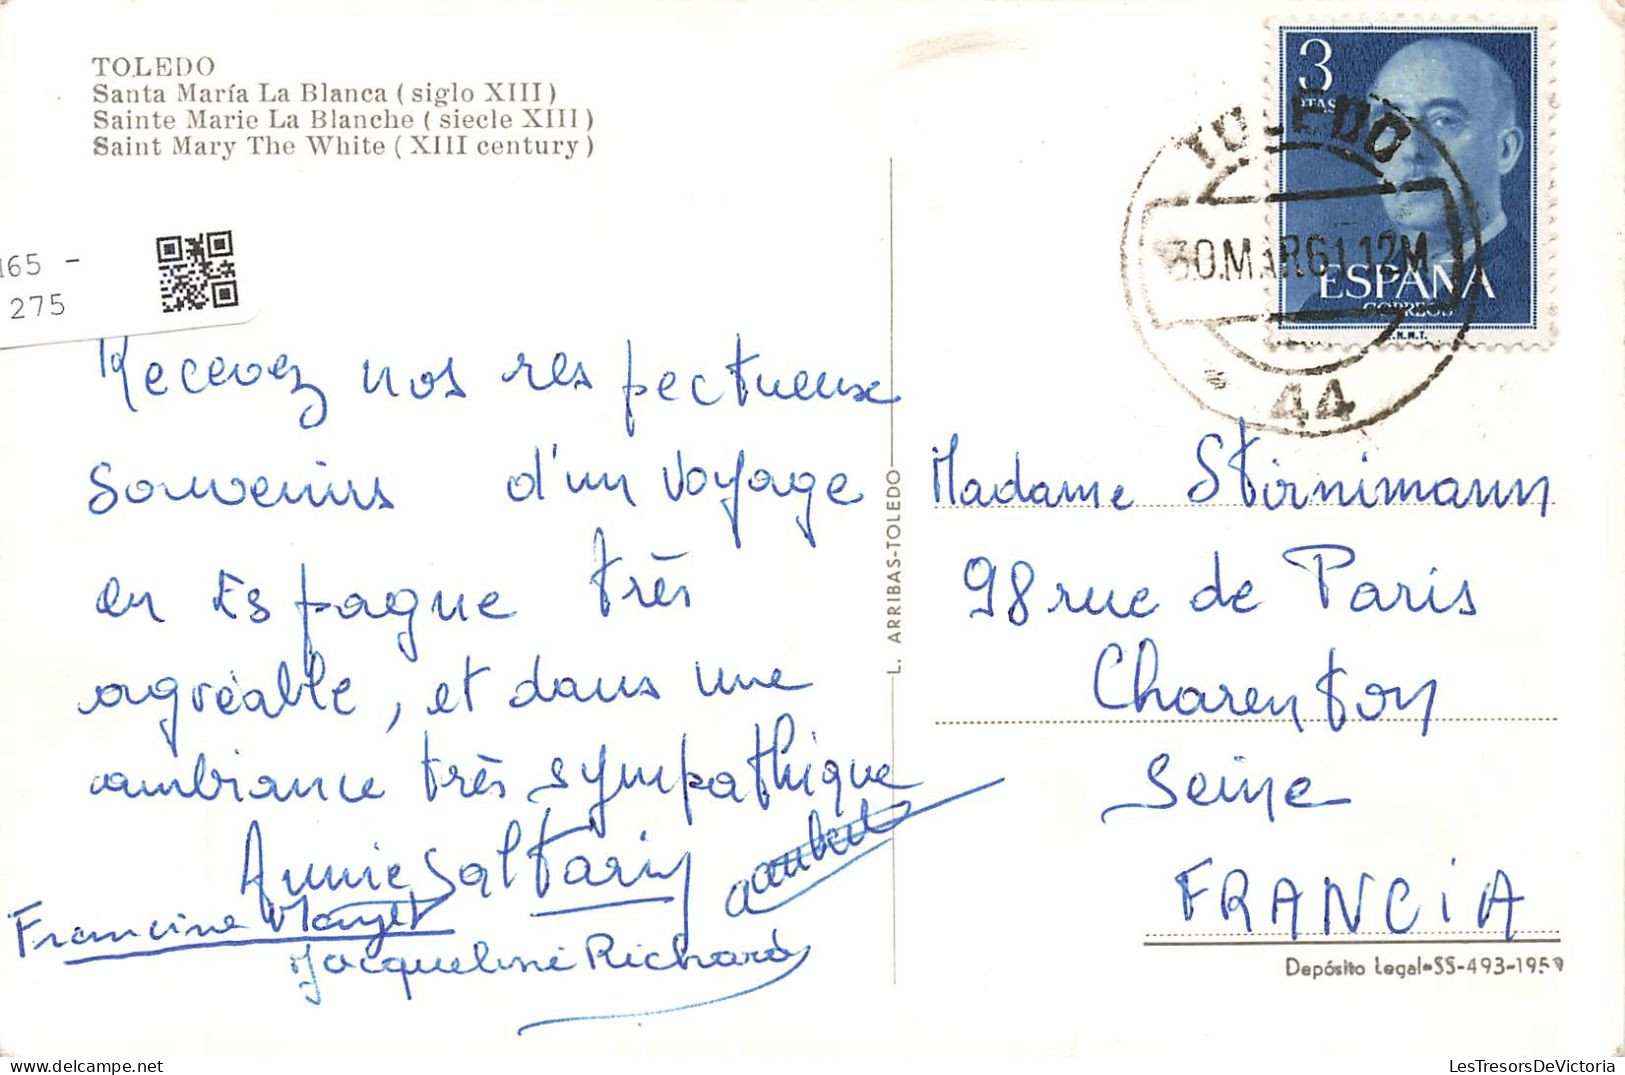 TOLEDO
Santa María La Blanca ( siglo XIII )
Sainte Marie La Blanche ( siecle XIII )
Saint Mary The White ( XIII century )
165 -
275
Recevez nos respectueux
souvenirs d'un voyage
en Espagne très
agréable, et dans une
ambiance très sympathique
Annie Saltarin
Francine
Jacqueline Richard
L. ARRIBAS-TOLEDO
3
PTAS
ESPAÑA
CORREOS
F.N.M.T.
TOLEDO
30.MAR61.12M
44
Madame Stirnimann
98 rue de Paris
Charenton
Seine
FRANCiA
Depósito Legal-SS-493-1959
LesTresorsDeVictoria